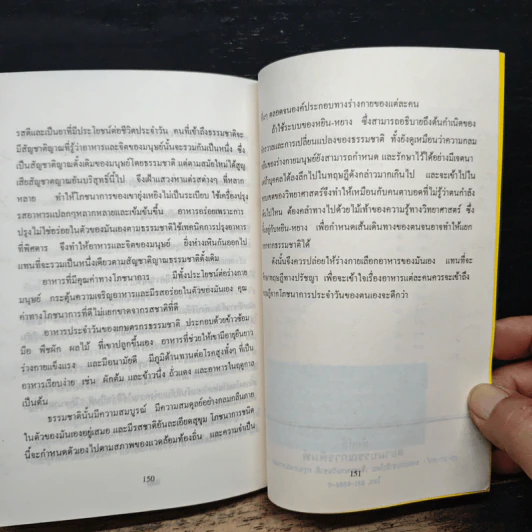 รสดีและเป็นยาที่มีประโยชน์ต่อชีวิตประจำวัน คนที่เข้าถึงธรรมชาติจะ
มีสัญชาติญาณที่รู้ว่าอาหารและจิตของมนุษย์นั้นจะรวมกันเป็นหนึ่ง ซึ่ง
เป็นสัญชาติญาณดั้งเดิมของมนุษย์โดยธรรมชาติ แต่คนสมัยใหม่ได้สูญ
เสียสัญชาตญาณอันบริสุทธิ์นี้ไป จึงเฝ้าแสวงหาแต่รสต่างๆ ที่หลาก
หลาย ทำให้โภชนาการของเขายุ่งเหยิงไม่เป็นระเบียบ ใช้เครื่องปรุง
รสอาหารแปลกๆหลากหลายและเข้มข้นขึ้น อาหารอร่อยเพราะการ
ปรุงไม่ใช่อร่อยในตัวของมันเองตามธรรมชาติใช้เทคนิคการปรุงอาหาร
ที่พิศดาร จึงทำให้อาหารและจิตของมนุษย์ ยิ่งห่างเหินกันออกไป
แทนที่จะรวมเป็นหนึ่งเดียวตามสัญชาติญาณธรรมชาติดั้งเดิม
อาหารที่มีคุณค่าทางโภชนาการ มีทั้งประโยชน์ต่อร่างกาย
มนุษย์ กระตุ้นความเจริญอาหารและมีรสอร่อยในตัวของมันเอง คุณ
ค่าทางโภชนาการที่ดีไม่แยกขาดจากรสชาติที่ดี
อาหารประจำวันของเกษตรกรธรรมชาติ ประกอบด้วยข้าวซ้อม
มือ พืชผัก ผลไม้ ที่เขาปลูกขึ้นเอง อาหารที่ช่วยให้เขามีอายุยืนยาว
ร่างกายแข็งแรง และมีอนามัยดี มีภูมิต้านทานต่อโรคสูงทั้งๆ ที่เป็น
อาหารเรียบง่าย เช่น ผักต้ม และข้าวนึ่ง ถั่วแดง และอาหารในฤดูกาล
เป็นต้น
ธรรมชาตินั้นมีความสมบูรณ์ มีความสมดุลย์อย่างกลมกลืนภาย
ในตัวของมันเองอยู่เสมอ และมีรสชาติอันละเอียดสุขุม โภชนาการชนิด
นี้จะกำหนดตัวเองไปตามสภาพของแวดล้อมท้องถิ่น และความจำเป็น
150
ตลอดจนองค์ประกอบทางร่างกายของแต่ละคน
ถ้าใช้ระบบของหยิน-หยาง ซึ่งสามารถอธิบายถึงต้นกำเนิดของ
และการเปลี่ยนแปลงของธรรมชาติ ทั้งยังดูเหมือนว่าความกลม
ของร่างกายมนุษย์ยังสามารถกำหนด และรักษาไว้ได้อย่างมีเจตนา
บุคคลได้ลงลึกไปในทฤษฎีดังกล่าวมากเกินไป และเข้าไปใน
เขตของวิทยาศาสตร์จึงทำให้เหมือนกับคนตาบอดที่ไม่รู้ว่าตนกำลัง
ไปไหน ต้องคลำทางไปด้วยไม้เท้าของความรู้ทางวิทยาศาสตร์ ซึ่ง
อยู่กับหยิน-หยาง เพื่อกำหนดเส้นเดินทางของตนจนอาจทำให้แยก
ธรรมชาติได้
ดังนั้นจึงควรปล่อยให้ร่างกายเลือกอาหารของมันเอง แทนที่จะ
ทฤษฎีทางปรัชญา เพื่อจะเข้าใจเรื่องอาหารแต่ละคนควรจะเข้าถึง
จากโภชนาการประจำวันของตนเองจะดีกว่า
151